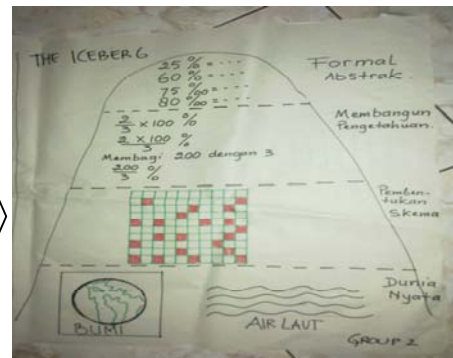 THE ICEBERG
25 % = - - -
60 % = - - -
75 %o = - - -
80 %o = - - -
Formal
Abstrak.
2/3 x 100 %
2 x 100 %
3
Membagi 200 dengan 3
200/3 %
Membangun
Pengetahuan.
Pemben-
tukan
Skema
Dunia
Nyata
BUMI
AIR LAUT
GROUP 2